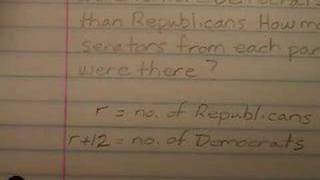 than Republicans. How m
senators from each par
were there?
r = no. of Republicans
r+12 = no. of Democrats